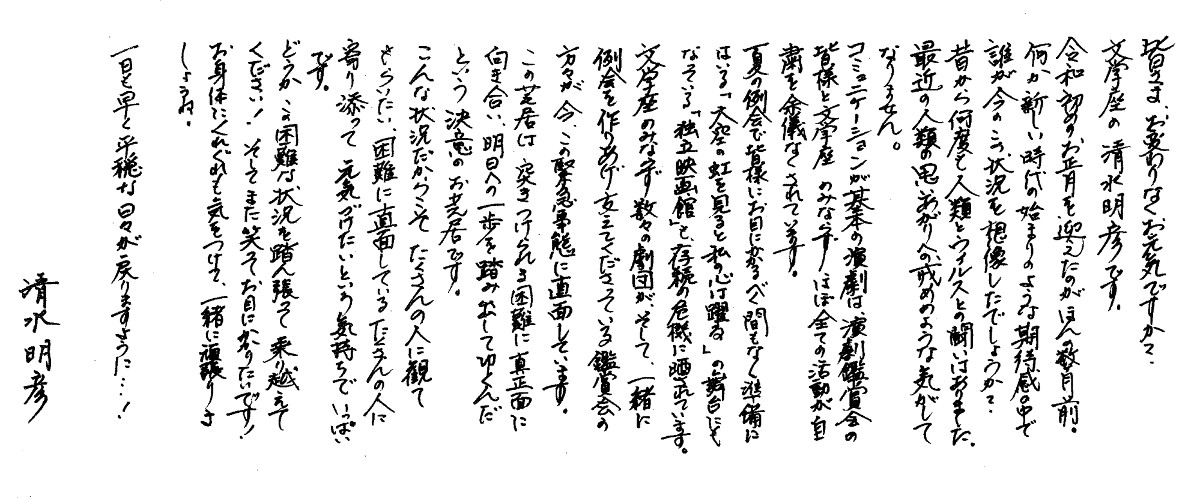 皆さま、お変わりなくお元気ですか?
文学座の清水明彦です。
令和初のお正月を迎えたのがほんの数月前。
何か新しい時代の始まりのような期待感の中で
誰が今のこの状況を想像したでしょうか?
昔から何度も人類とウィルスとの闘いはありました。
最近の人類の思いあがりへの戒めのような気がして
なりません。
コミュニケーションが基本の演劇は、演劇鑑賞会の
皆様と文学座のみならず、ほぼ全ての活動が自
粛を余儀なくされています。
夏の例会で皆様にお目にかかるべく間もなく準備に
はいる「大空の虹を見ると私の心は躍る」の舞台にも
なっている「独立映画館」も、存続の危機に晒されています。
文学座のみならず、数々の劇団が、そして、一緒に
例会を作りあげ支えてくださっている鑑賞会の
方々が今、この緊急事態に直面しています。
この芝居は、突きつけられる困難に真正面に
向き合い、明日への一歩を踏みだしてゆくんだ
という決意のお芝居です。
こんな状況だからこそたくさんの人に観て
もらいたい、困難に直面しているたくさんの人に
寄り添って元気づけたいという気持ちでいっぱい
です。
どうかこの困難な状況を踏ん張って乗り越えて
ください!そしてまた笑ってお目にかかりたいです!
お身体にくれぐれも気をつけて、一緒に頑張りま
しょうね。
一日も早く平穏な日々が戻りますように…!
清水明彦